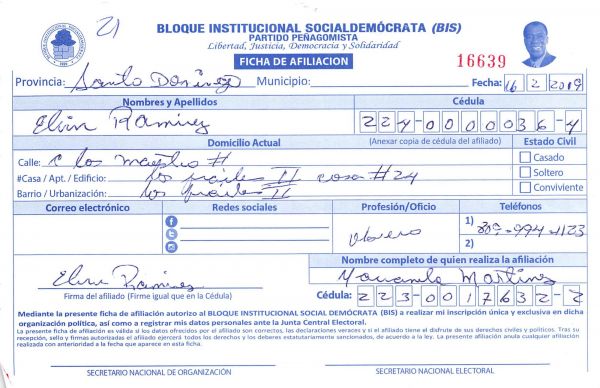 21
BLOQUE INSTITUCIONAL SOCIALDEMÓCRATA (BIS)
PARTIDO PEÑAGOMISTA
Libertad, Justicia, Democracia y Solidaridad
FICHA DE AFILIACION
16639
Provincia: Santo Domingo Municipio: Fecha: 16 2 2019
Nombres y Apellidos Cédula
Elvin Ramirez 224-0000036-4
Domicilio Actual (Anexar copia de cédula del afiliado) Estado Civil
Calle: C los #
Casado
#Casa / Apt. / Edificio: los frailes II casa #24
Soltero
Barrio / Urbanización: los frailes II
Conviviente
Correo electrónico Redes sociales Profesión/Oficio Teléfonos
obrero
1) 809-994-4123
2)
Nombre completo de quien realiza la afiliación
Elvin Ramirez Martinez
Firma del afiliado (Firme igual que en la Cédula) Cédula: 223-0017632-2
Mediante la presente ficha de afiliación autorizo al BLOQUE INSTITUCIONAL SOCIAL DEMÓCRATA (BIS) a realizar mi inscripción única y exclusiva en dicha
organización política, así como a registrar mis datos personales ante la Junta Central Electoral.
La presente ficha de afiliación es válida si los datos ofrecidos por el afiliado son correctos, las declaraciones veraces y si el afiliado tiene el disfrute de sus derechos civiles y políticos. Tras su
recepción, sello y firmas autorizadas el afiliado ejercerá todos los derechos y los deberes estatutariamente sancionados, de acuerdo a la ley. La presente afiliación anula cualquier afiliación
realizada con anterioridad a la fecha que aparece en esta ficha.
SECRETARIO NACIONAL DE ORGANIZACIÓN SECRETARIO NACIONAL ELECTORAL